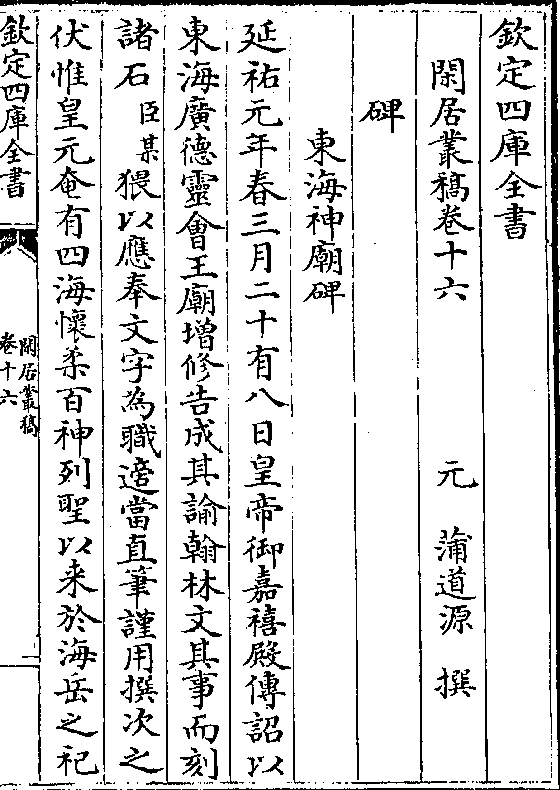 欽定四庫全書
閑居叢稿卷十六
元 蒲道源 撰
碑
東海神廟碑
延祐元年春三月二十有八日皇帝御嘉禧殿傳詔以
東海廣德靈會王廟增修告成其諭翰林文其事而刻
諸石臣某猥以應奉文字為職適當直筆謹用撰次之
伏惟皇元奄有四海懷柔百神列聖以来於海岳之祀
欽定四庫全書
閑居叢稿
卷十六